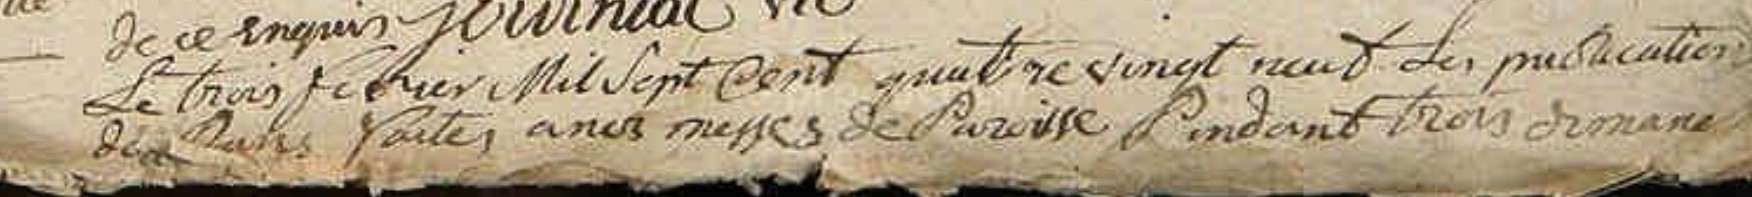 de ce enquis Journial vic
Le trois fevrier Mil Sept Cent quatre vingt neuf Les publication
des Bans faites a nos messes de Paroisse Pendant trois dimanc